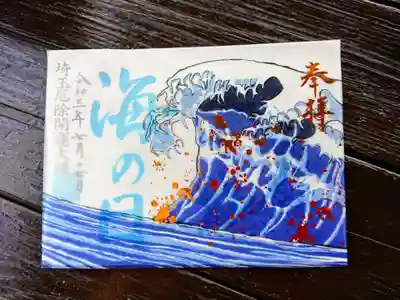 奉拝
海の日
令和三年七月
埼玉厄除開運大師